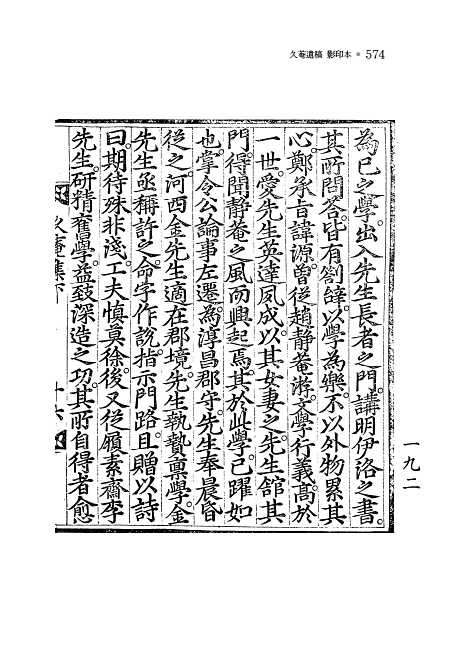 久菴遺稿 影印本 • 574
為己之學。出入先生長者之門。講明伊洛之書。
其所問答。皆有劄錄。以學為樂。不以外物累其
心。鄭承旨諱源。曾從趙靜菴游。文學行義。高於
一世。愛先生英達夙成。以其女妻之。先生館其
門。得聞靜菴之風而興起焉。其於此學。已躍如
也。掌令公論事左遷。為淳昌郡守。先生奉晨昏
從之。河西金先生適在郡境。先生執贄稟學。金
先生亟稱許之。命字作說。指示門路。且贈以詩
曰。期待殊非淺。工夫慎莫徐。後又從履素齋李
先生。研精舊學。益致深造之功。其所自得者愈
久菴集下
十六
一九二